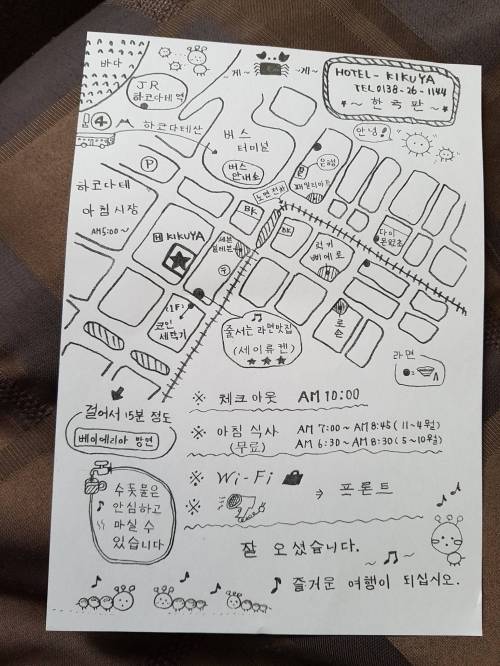 바다
JR
하코다테 역
~게~ ~게~
HOTEL - KIKUYA
TEL 0138-26-1144
~ 한국판 ~
안녕!
④
하코다테산
버스
터미널
버스
안내소
은행
패밀리마트
P
하코다테
아침시장
AM 5:00~
H KIKUYA
세븐
일레븐
BK
노면 전차
BK
럭키
삐에로
다이
몬요코
(1F)
코인
세탁기
줄서는 라면맛집
(세이류켄)
★★★
로손
라면
걸어서 15분 정도
베이에리아 방면
※ 체크아웃 AM 10:00
※ 아침 식사 AM 7:00 ~ AM 8:45 (11~4월)
(무료) AM 6:30 ~ AM 8:30 (5~10월)
※ Wi-Fi
※ → 프론트
수돗물은
안심하고
마실 수
있습니다
잘 오셨습니다.
즐거운 여행이 되십시오.